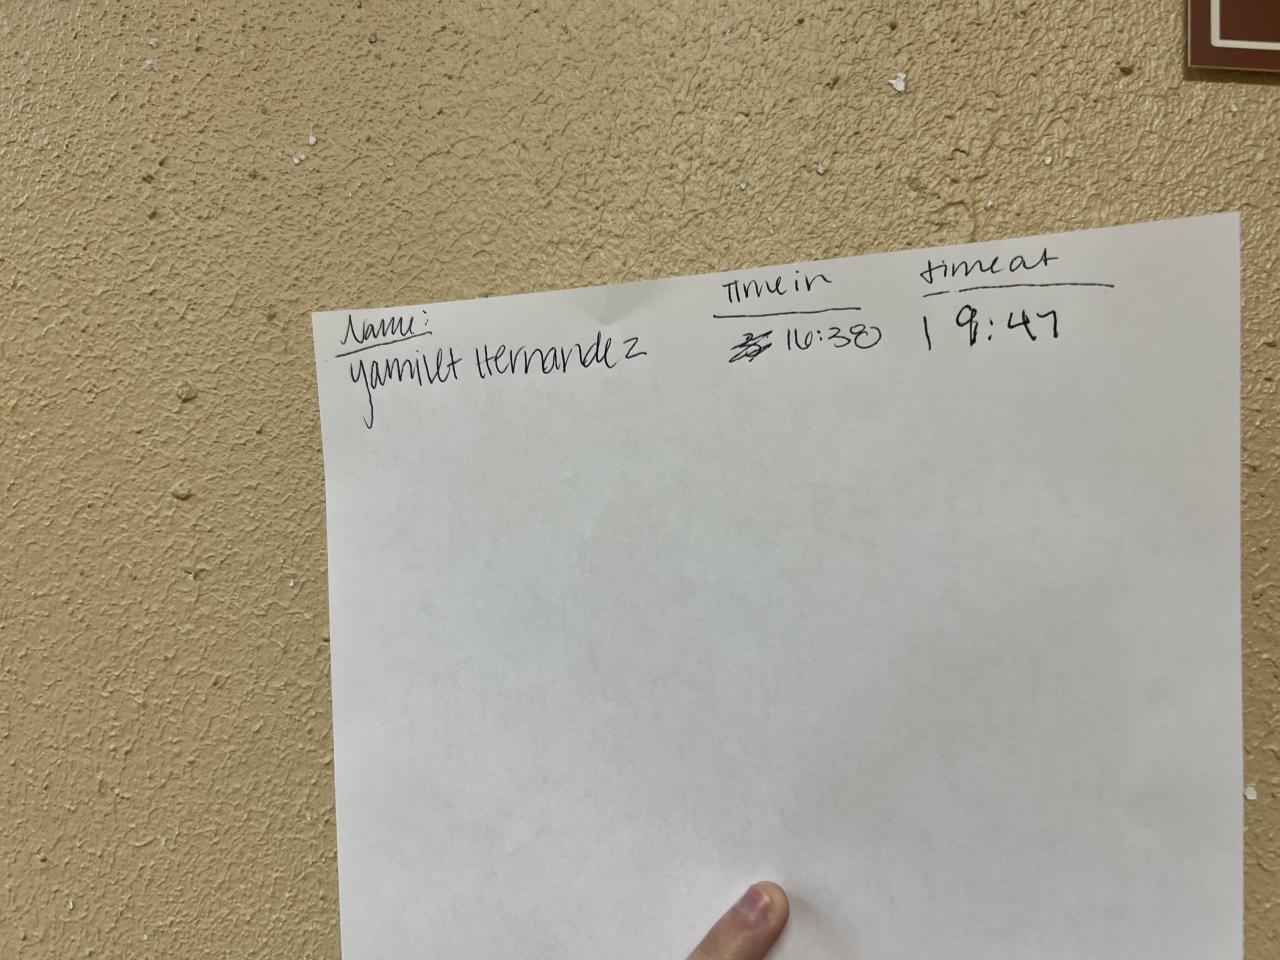 Name: Time in time out
Yamilet Hernandez 16:38 19:47